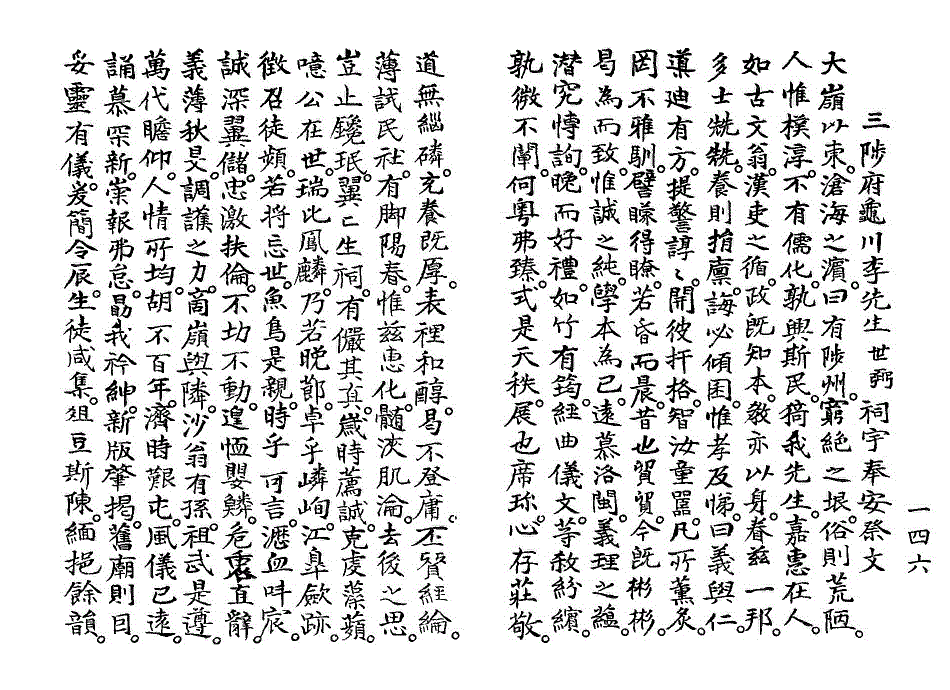 三陟府龜川李先生世弼祠宇奉安祭文
大嶺以東。滄海之濱。曰有陟州。窮絶之垠。俗則荒陋。
人惟樸淳。不有儒化。孰興斯民。猗我先生。嘉惠在人。
如古文翁。漢吏之循。政旣知本。敎亦以身。眷玆一邦。
多士兟兟。養則損廩。誨必傾囷。惟孝及悌。曰義與仁。
導迪有方。提警諄諄。開彼扞格。智汝童嚚。凡所薰炙。
罔不雅馴。譬矇得瞭。若昏而晨。昔也貿貿。今旣彬彬。
曷為而致。惟誠之純。學本為己。遠慕洛閩。義理之蘊。
潛究愽詢。晩而好禮。如竹有筠。經曲儀文。等殺紛繽。
孰微不闡。何粤弗臻。式是天秩。展也席珍。心存莊敬。
道無緇磷。充養旣厚。表裡和醇。曷不登庸。丕賢經綸。
薄試民社。有脚陽春。惟玆惠化。髓浹肌淪。去後之思。
豈止鑱珉。翼亡生祠。有儼其宜。歲時薦誠。克虔藻蘋。
噫公在世。瑞此鳳麟。乃若晩節。卓乎嶙峋。江皐歛跡。
徵召徒頻。若將忘世。魚鳥是親。時乎可言。瀝血叫宸。
誠深翼儲。忠激扶倫。不㓛不動。遑恤嬰鱗。危衷直辭。
義薄秋旻。調護之力。啇嶺與隣。沙翁有孫。祖武是遵。
萬代瞻仰。人情所均。胡不百年。濟時艱屯。風儀已遠。
誦慕罙新。崇報弗怠。勗我衿紳。新版肇揭。舊廟則因。
妥靈有儀。爰簡令辰。生徒咸集。俎豆斯陳。緬挹餘韻。
一四六